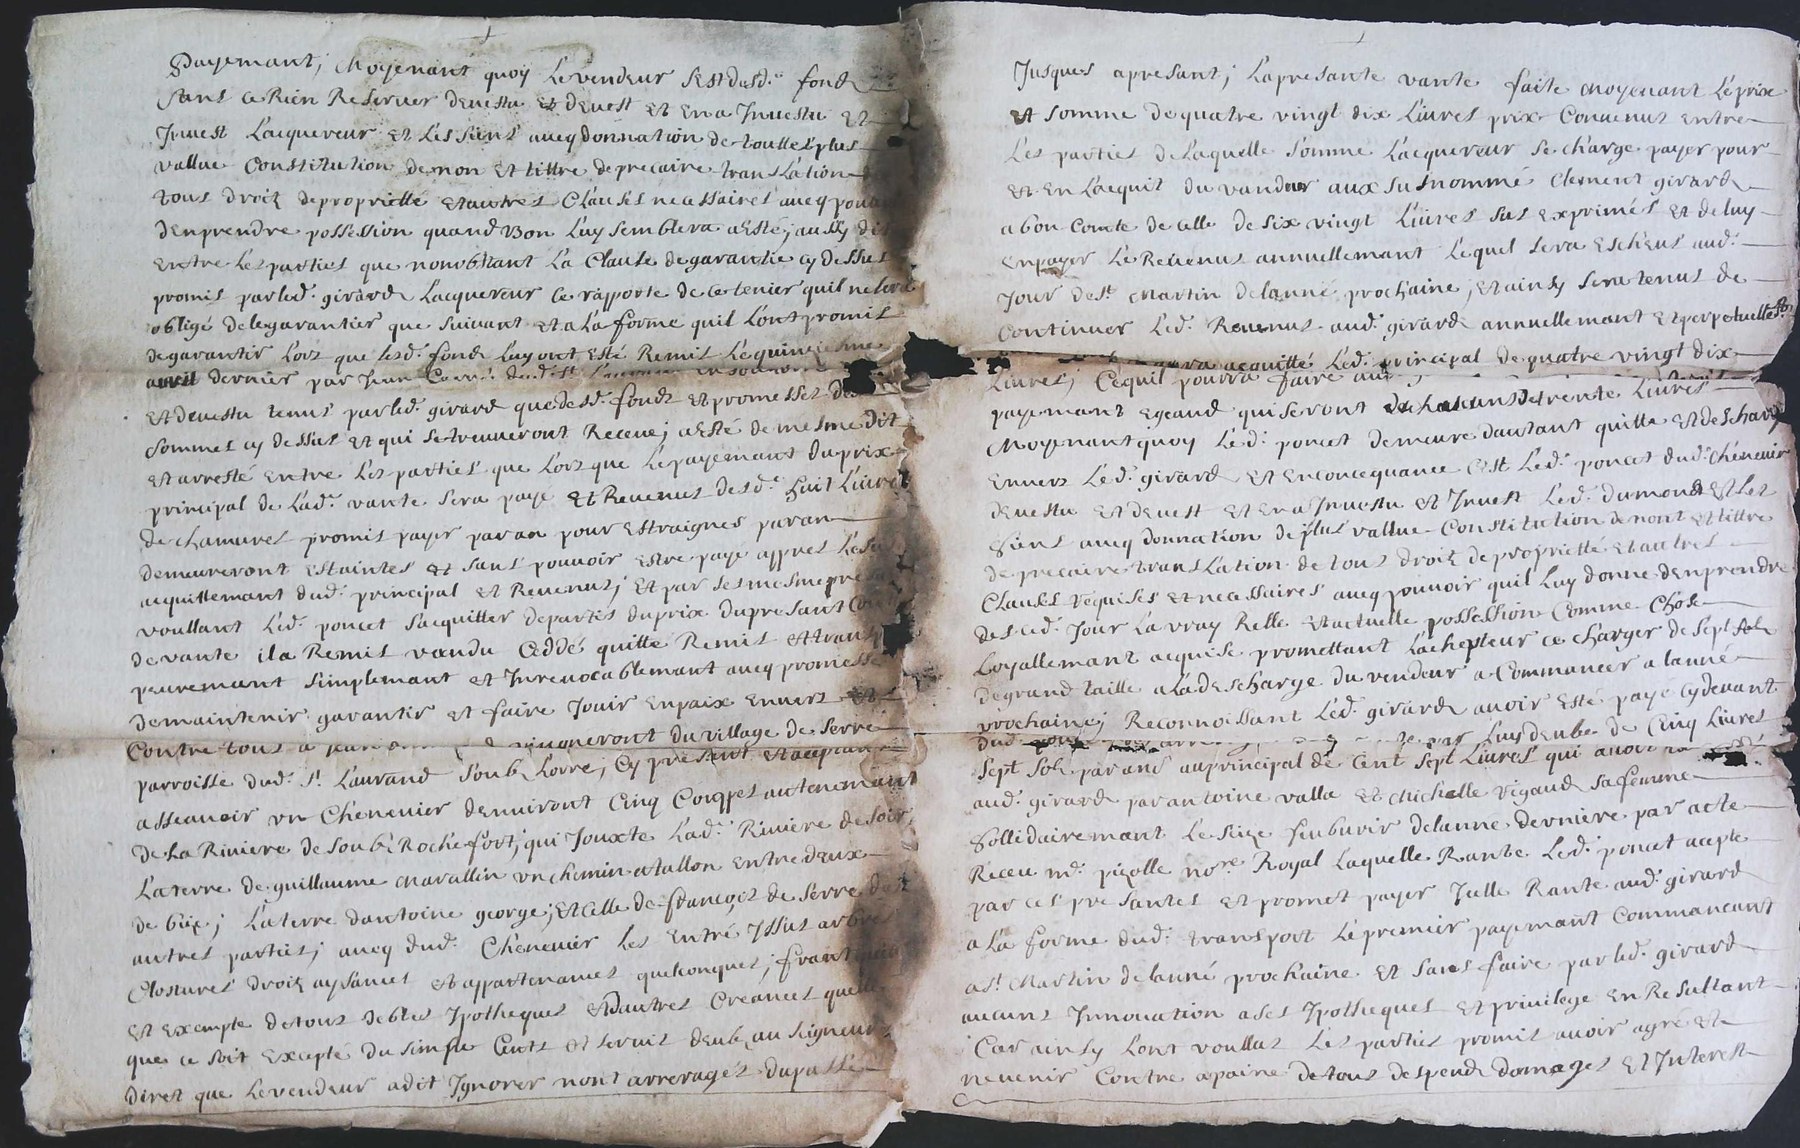 payemant, Moyenant quoy Le vendeur sest desd.s fondz
sans ce Rien Reserver devestu et devest et En a Jnvestu et
Jnvest Lacquereur et Les siens avecq donnation de touttes plus
vallue Constitution de non et tittre de precaire translation
tous droitz deproprietté et autres Clauses necessaires avecq pouv
denprendre possession quand Bon Luy semblera a Esté, aussy dit
Entre Les parties que nonobstant La Clause de garantie cy dessus
promis parled. girard Lacquereur ce rapporte de ce tenier quil ne sera
obligé de le garantier que suivant et a La forme quil Lont promis
de garantir Lors que lesd. fondz Luy ont Esté Remis Le quinziesme
avril dernier par Jean
Et devestu tenus parled. girard que desd. fondz et promesses des
sommes cy dessus et qui se treuveront Receue, a Esté de mesme dit
et arresté Entre Les parties que Lors que Le payemant du prix
principal de Lad. vante sera payé et Revenus desd. huit Livres
de chamures promis payer par an pour Estraignes par an
demeureront Estaintes et sans pouvoir estre payé appres Le
acquittemant dud. principal et Revenus, Et par ses mesme presa
voullant Led. poncet sacquitter departis du prix du presant Con
de vante il a Remis vandu Ceddé quitté Remis et transp
peuremant simplemant et Jnrevocablemant avecq promesse
de maintenir garantir et faire Jouir En paix Envers et
Contre tous a Jean du village de serre
parroisse dud. st. Laurand soubz Lorre, Cy presant et aceptan
asseavoir vn Chenevier denviront Cinq Couppes au tenemant
de La Riviere de soubz Rochefort, qui Jouxte Lad. Riviere de soir,
La terre de guillaume Mavallin vn chemin a tallon Entre deux
de bize, La terre dantoine george, et celle de françois de serre des
autres parties, avecq dud. Chenevier Les Entré Jssus arbres
Clostures droitz aysances et appartenances quelconques, franc
Et Exempte de tous debtes Jpotheques et dautres Creances quelle
que ce soit Excepté du simple Cents et servis deubz au seigneur
Diret que Le vendeur a dit Jgnorer nont arrerages du passé
Jusques apresant, La presante vante faite Moyenant Le prix
et somme de quatre vingt dix Livres prix Convenus Entre
Les parties de Laquelle somme Lacquereur se charge payer pour
et En Lacquit du vandeur aux susnommé Clement girard
a bon Comte de celle de six vingt Livres sus Exprimés et de luy
En payer Le Revenus annuellemant Lequel sera Escheus aud.
Jour de st. Martin de lanné prochaine, et ainsy sera tenus de
Continuer Led. Revenus aud. girard annuellemant et perpetuellemt.
acquitté Led. principal de quatre vingt dix
Livres, Ce quil pourra faire
payemant Egeaud qui seront de chascuns de trente Livres
Moyenant quoy Led. poncet demeure dautant quitte et descharg
Envers Led. girard et En concequance Cest Led. poncet dud. chenevier
devestu et devest et En a Jnvestu et Jnvest Led. dumond et Les
siens avecq donnation de plus vallue Constitution de nont et tittre
de precaire translation de tous droitz de proprietté et autres
Clauses requises et necessaires avecq pouvoir quil Luy donne denprendre
des ced. Jour La vray Relle et actuelle possession Comme Chose
Loyallemant acquise promettant Lachepteur ce charger de sept solz
de grand taille a La descharge du vendeur a Commancer a lanné
prochaine, Reconnoissant Led. girard avoir Esté payé cy devant
dud. Luy deube de Cinq Livres
sept solz par ans au principal de Cent sept Livres qui avoit
aud. girard par antoine valla et Michelle rigaud sa femme
sollidairemant Le seize feubvrir de lanne derniere par acte
Receu md. pizolle nore. Royal Laquelle Rante Led. poncet acepte
par ces presantes et promet payer Jcelle Rante aud. girard
a La forme dud. transport Le premier payemant Commancant
a st. Martin de lanné prochaine et sans faire par led. girard
aucuns Jnnovation a ses Jpotheques et privilege En Resultant
Car ainsy Lont voullus Les parties promis avoir agré et
nevenir Contre apaine de tous despendz domages et Jnterest